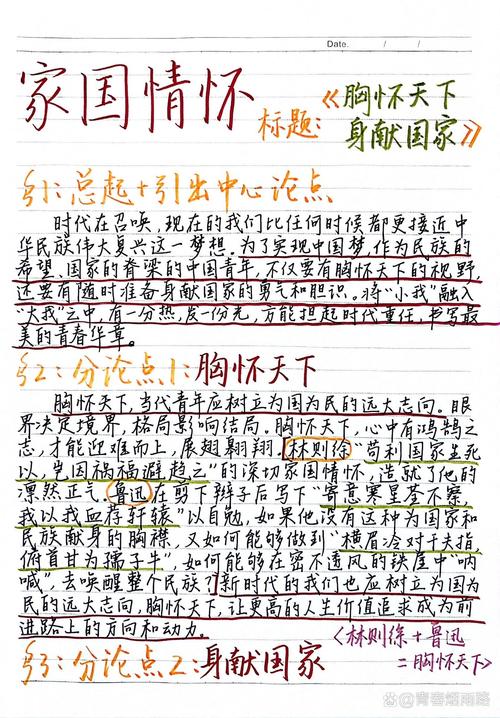 Date. / /
家国情怀
标题:
《胸怀天下
身献国家》
§1:总起+引出中心论点
时代在召唤,现在的我们比任何时候都更接近中
华民族伟大复兴这一梦想。为了实现中国梦,作为民族的
希望、国家的脊梁的中国青年,不仅要有胸怀天下的视野,
还要有随时准备身献国家的勇气和胆识。将“小我”融入
“大我”之中,有一分热,发一份光,方能担起时代重任,书写最
美的青春华章。
§2:分论点1:胸怀天下
胸怀天下,当代青年应树立为国为民的远大志向。眼
界决定境界,格局影响结局。胸怀天下,心中有鸿鹄之
志,才能迎难而上,展翅翱翔。林则徐“苟利国家生死
以,岂因祸福避趋之”的深切家国情怀,造就了他的
凛然正气。鲁迅在剪下辫子后写下“寄意寒星荃不察,
我以我血荐轩辕”以自勉,如果他没有这种为国家和
民族献身的胸襟,又如何能够做到“横眉冷对千夫指,
俯首甘为孺子牛”,如何能够在密不透风的铁屋中“呐
喊”,去唤醒整个民族?新时代的我们也应树立为国为
民的远大志向,胸怀天下,让更高的人生价值追求成为前
进路上的方向和动力。
<林则徐+鲁迅
=胸怀天下>
§3:分论点2:身献国家
@青春烟雨路